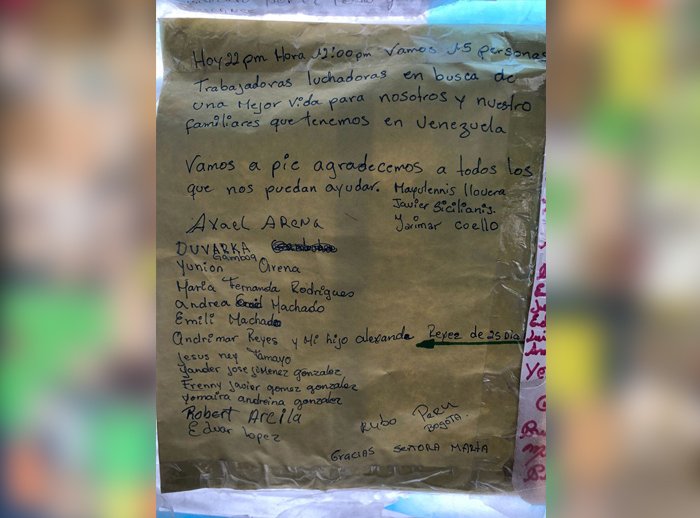 Hoy 22 pm Hora 12:00 pm Vamos 15 personas
Trabajadoras luchadoras en busca de
una Mejor Vida para nosotros y nuestro
familiares que tenemos en venezuela
Vamos a pie agradecemos a todos los
que nos puedan ayudar.
Mayulennis llovera
Javier Sicilianis.
Yarimar coello
Axael ARENA
DUVARKA
Gamboa
Yunion Arena
Maria Fernanda Rodrigues
andrea Machado
Emili Machado
Andrimar Reyes y Mi hijo alexande Reyez de 25 Dia
Jesus ney Tamayo
Yander jose jimenez gonzalez
Frenny javier gomez gonzalez
Yomaira andreina gonzalez
Robert Arcila
Eduar lopez
Rubo Peru
Bogota.
Gracias SEÑORA MARTA